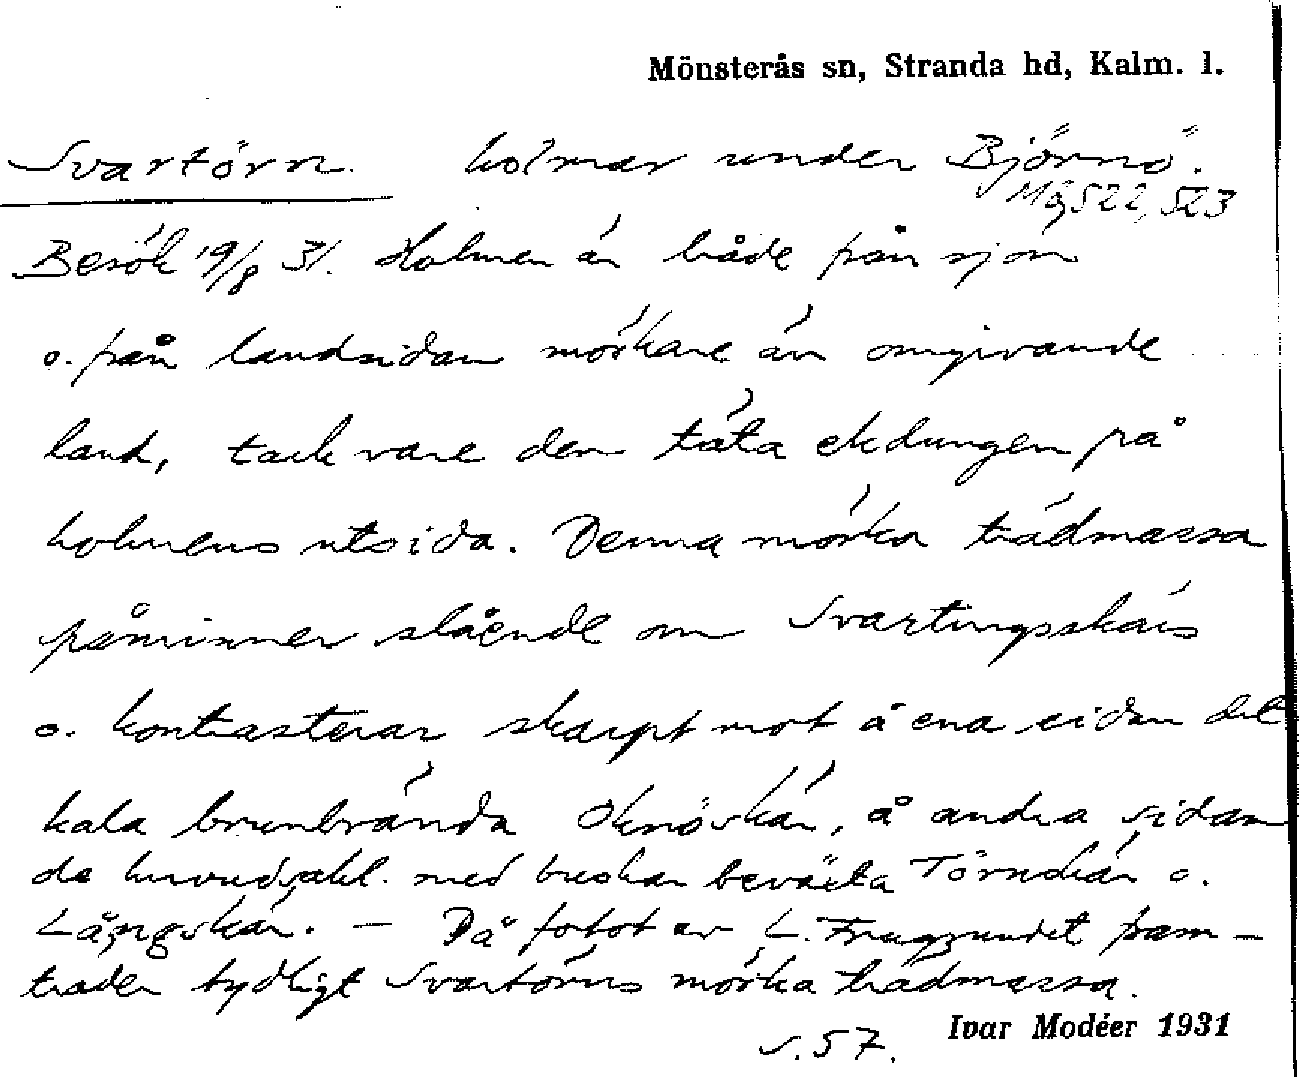 Mönsterås sn, Stranda hd, Kalm. l.
Svartörn. holmar under Björnö.
Mg 522, 523
Besök 19/8 31. Holmen är både från sjön
o. från landsidan mörkare än omgivande
land, tack vare den täta ekdungen på
holmens utsida. Denna mörka trädmassa
påminner slående om Svartingsskärs
o. kontrasterar skarpt mot å ena sidan det
kala brunbrända Oknöskär, å andra sidan
de huvudsakl. med buskar beväxta Törnskär o.
Långskär. — På fotot av L. fram-
träder tydligt Svartörns mörka trädmassa.
s. 57.
Ivar Modéer 1931